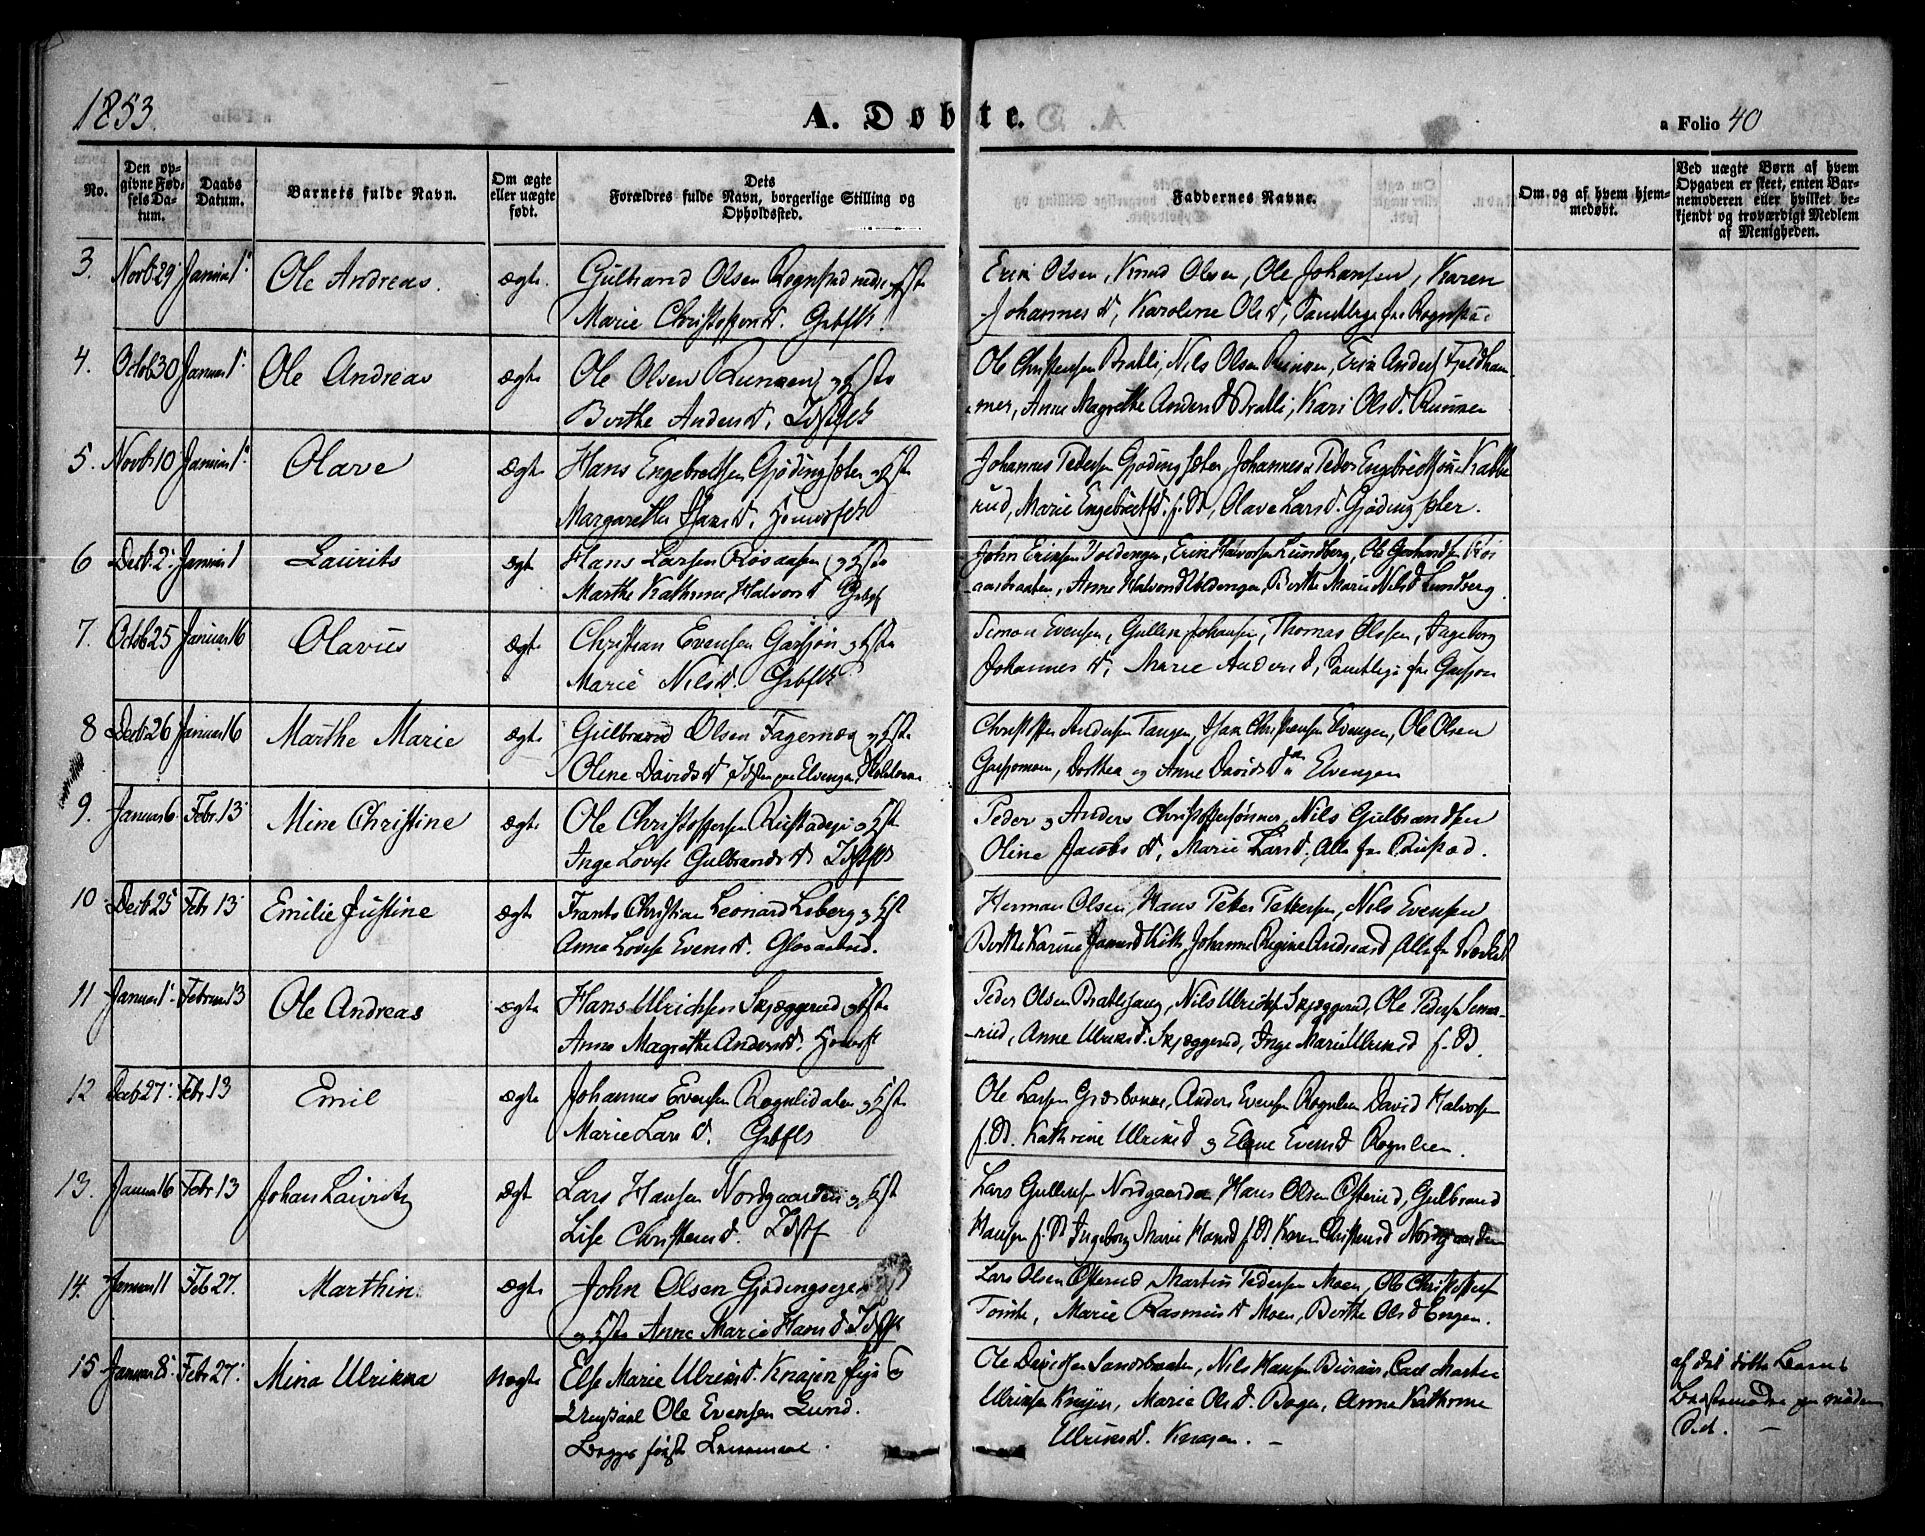 1853.
A. Døbte.
a Folio 40
No.
Den opgivne Fødsels Datum.
Daabs Datum.
Barnets fulde Navn.
Om ægte eller uægte født.
Dets Forældres fulde Navn, borgerlige Stilling og Opholdssted.
Faddernes Navne.
Om og af hvem hjemmedøbt.
Ved uægte Børn af hvem Opgaven er skeet, enten Barnemoderen eller hvilket bekjendt og troværdigt Medlem af Menigheden.
3. Novb 29 Januar 1. Ole Andreas. ægte. Gulbrand Olsen Rognstad
Marie Christoffersd. Grbflk.
Erik Olsen, Knud Olsen, Ole Johansen, Karen
Johannesd, Karoline Olsd, Samtlige fra Rognstad
4. Octob 30 Januar 1. Ole Andreas ægte Ole Olsen Runnen og Hstr
Berthe Andersd. Idstflk
Ole Christensen Bratli, Nils Olsen Runnen, Erik Anders Fjeldham
mer, Anne Magrethe Andersd Bratli, Kari Olsd. Runnen
5. Novb 10 Januar 1. Olave ægte Hans Engebretsen Gjødingsæter og Hstr
Margarethe Hansd. Huusflk
Johannes Pedersen Gjødingsæter, Johannes & Peder Engebretsønner Kabbe
rud, Marie Engebretsd. f. St, Olave Larsd. Gjødingsæter.
6 Decb. 2. Januar 1 Laurits ægt Hans Larsen Rosaasen og Hstr
Marthe Kathrine Halvorsd Grbfl
John Eriksen Voldengen, Erik Halvorsen Lundberg, Ole
aasbraaten, Anne Halvorsd Voldengen, Berthe Marie Nilsd Lundberg.
7. Octob 25 Januar 16 Olavus ægte Christian Evensen Gaasjøn og Hstr
Marie Nilsd. Grbflk
Simon Evensen, Gullik Johansen, Thomas Olsen, Ingeborg
Johannesd, Marie Andersd, Samtlige fra Gaasjøn
8 Decb 26 Januar 16 Marthe Marie ægte. Gulbrand Olsen Fagernæs og Hstr
Oline Davidsd Elvengen
Christoffer Andersen Tangen, Hans Christensen Elvengen, Ole Olsen
Dorthea og Anne Davidsd Elvengen
9. Januar 6. Febr. 13 Mine Christine ægte Ole Christoffersen Rustadeje og Hstr
Inge Lovise Gulbrandsd Idstflk
Peder og Anders Christoffersønner, Nils Gulbrandsen
Oline Jacobsd, Marie Larsd, Alle fra Rustad.
10. Decb 25 Febr 13 Emilie Justine ægte Frants Christian Leonard Loberg og Hst
Anne Lovise Evensd. Glosaabrd.
Herman Olsen, Hans Peter Pettersen, Nils Evensen
Berthe Karine Jansd Kith, Johanne Regine Andreasd Alle fra Værket
11 Januar 1. Februar 13 Ole Andreas ægte Hans Ulrichsen Skjæggerud og Hstr
Anne Magrethe Andersd. Huusfl
Peder Olsen Bratlihaug, Nils Ulrichs Skjæggerud, Ole Peders
rud, Anne Ulriksd. Skjæggerud, Inge Marie Ulriksd f. St.
12 Decb 27. Febr 13 Emil ægte Johannes Evensen Rognlidalen og Hstr
Marie Larsd. Grbflk
Ole Larsen Græsbonne, Anders Evensen Rognlien David Halvorsen
f. St. Kathrine Ulriksd og Elene Evensd Rognlien.
13. Januar 16 Febr 13 Johan Lauritz ægt Lars Hansen Nordgaarden og Hst
Lise Christensd. Idstf
Lars Gulliksen Nordgaarden, Hans Olsen Østerud, Gulbrand
Hansen f. St Ingeborg Marie Hansd f. St. Karen Christensd Nordgaarden
14. Januar 11 Feb 27. Marthin ægte John Olsen Gjødingseje
og Hstr Anne Marie Hansd Idstflk
Lars Olsen Østerud Martin Pedersen Moen, Ole Christoffers
Tomte, Marie Rasmusd Moen, Berthe Olsd Engen.
15 Januar 8. Febr 27. Mina Ulrikka Uægte Else Marie Ulriksd. Knajen Pige &
Ungkarl Ole Evensen Lund.
Begges første Leiermaal.
Ole Davidsen Sandbraaten, Nils Hansen Busaas, Carl Martin
Ulriksen Knajen, Marie Olsd. Boger, Anne Kathrine
Ulriksd. Knajen. –
af det døbte Barns
Bedstemoder
Std. –